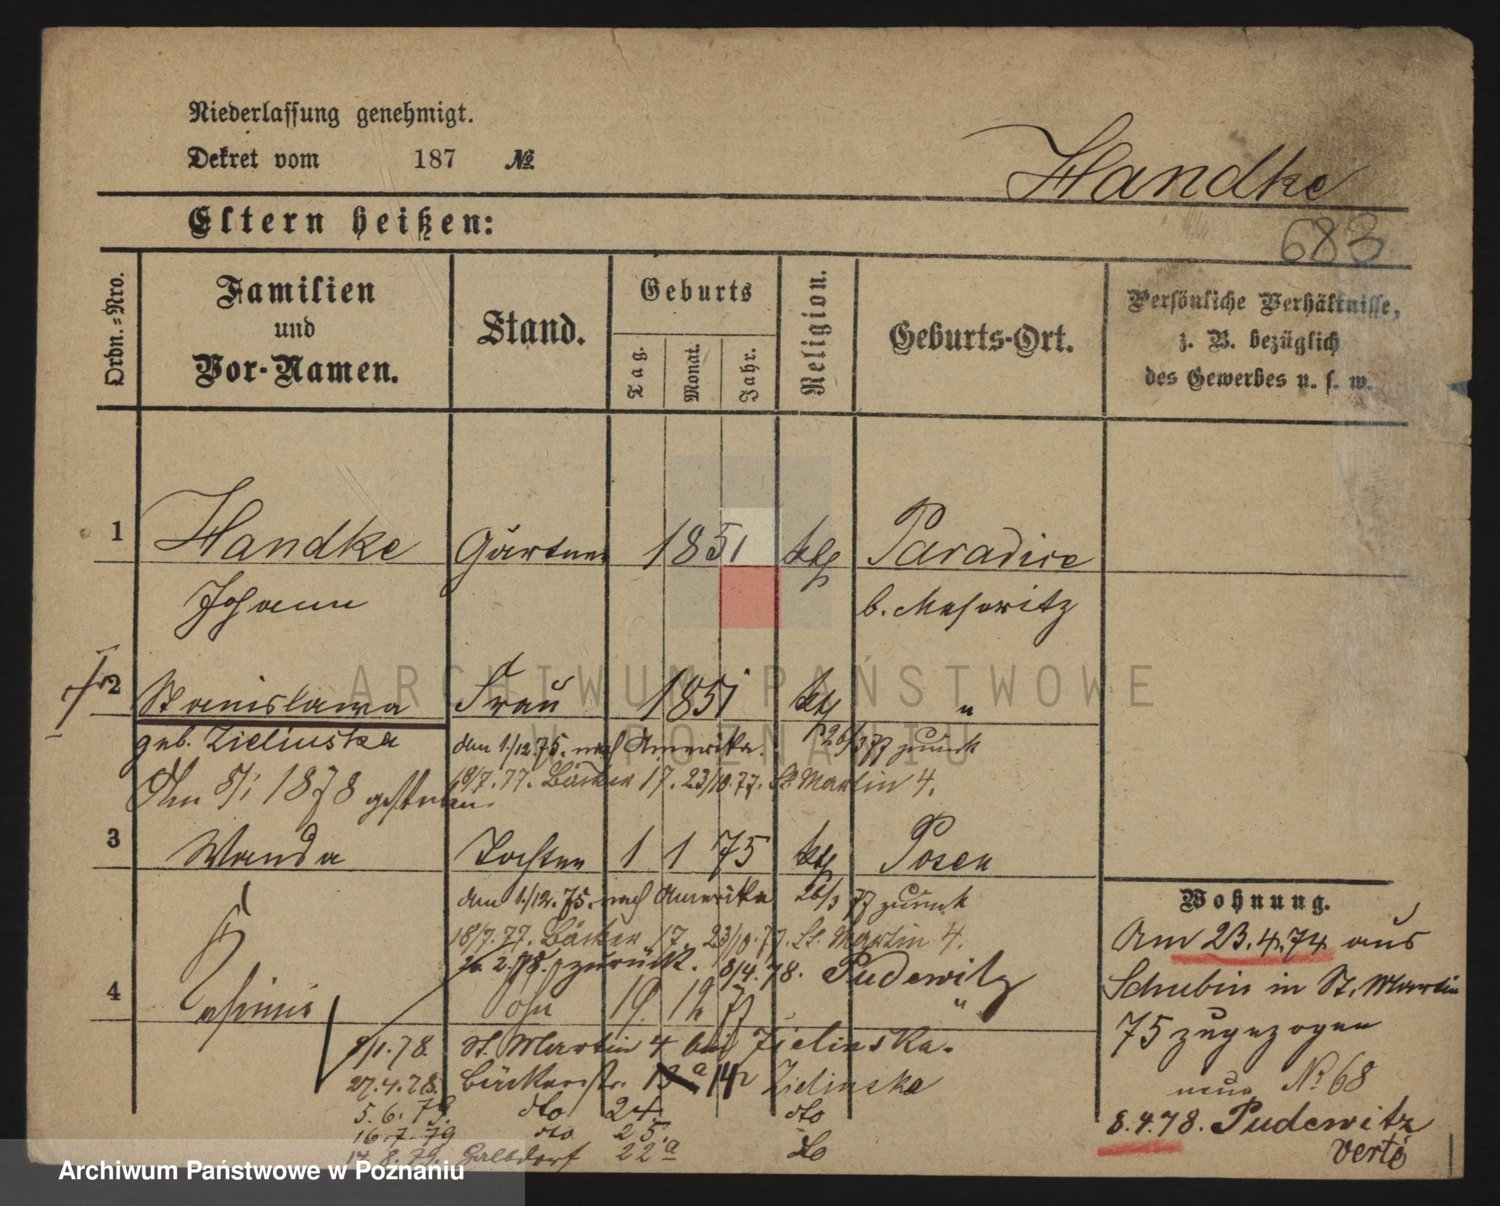 Niederlassung genehmigt.
Dekret vom 187 №
Handke
Eltern heißen:
683
Ordn.=Nro.
Familien und Vor-Namen.
Stand.
Geburts
Tag.
Monat.
Jahr.
Religion.
Geburts-Ort.
Persönliche Verhältnisse, z. B. bezüglich des Gewerbes u. s. w.
1 Handke Gärtner 1851 kth Paradise
Johann b. Meseritz
2 Stanislawa Frau 1851 kth "
geb. Zielinska den 1./12.75. nach Amerika. 26/3 77 zurück
Am 5/1 1878 gestorben. 18/7.77. Bäcker 17. 23/10.77. St. Martin 4.
3 Wanda Tochter 1 1 75 kth Posen
den 1./12.75. nach Amerika 26/3 77 zurück
18/7.77. Bäcker 17. 23/10.77. St. Martin 4.
2.78. zurück. 8/4.78. Pudewitz
4 Sohn 19 12 77 "
/1.78. St. Martin 4 bei Zielinska.
27.4.78. Bäckerstr. 13a 14 Zielinska
5.6.79. dto 24. dto
16.7.79 dto 25.
14.8.79. 22a do
Wohnung.
Am 23.4.74 aus
Schubin in St. Martin
75 zugezogen
neue № 68
8.4.78. Pudewitz
verte
ARCHIWUM PAŃSTWOWE
W POZNANIU
Archiwum Państwowe w Poznaniu